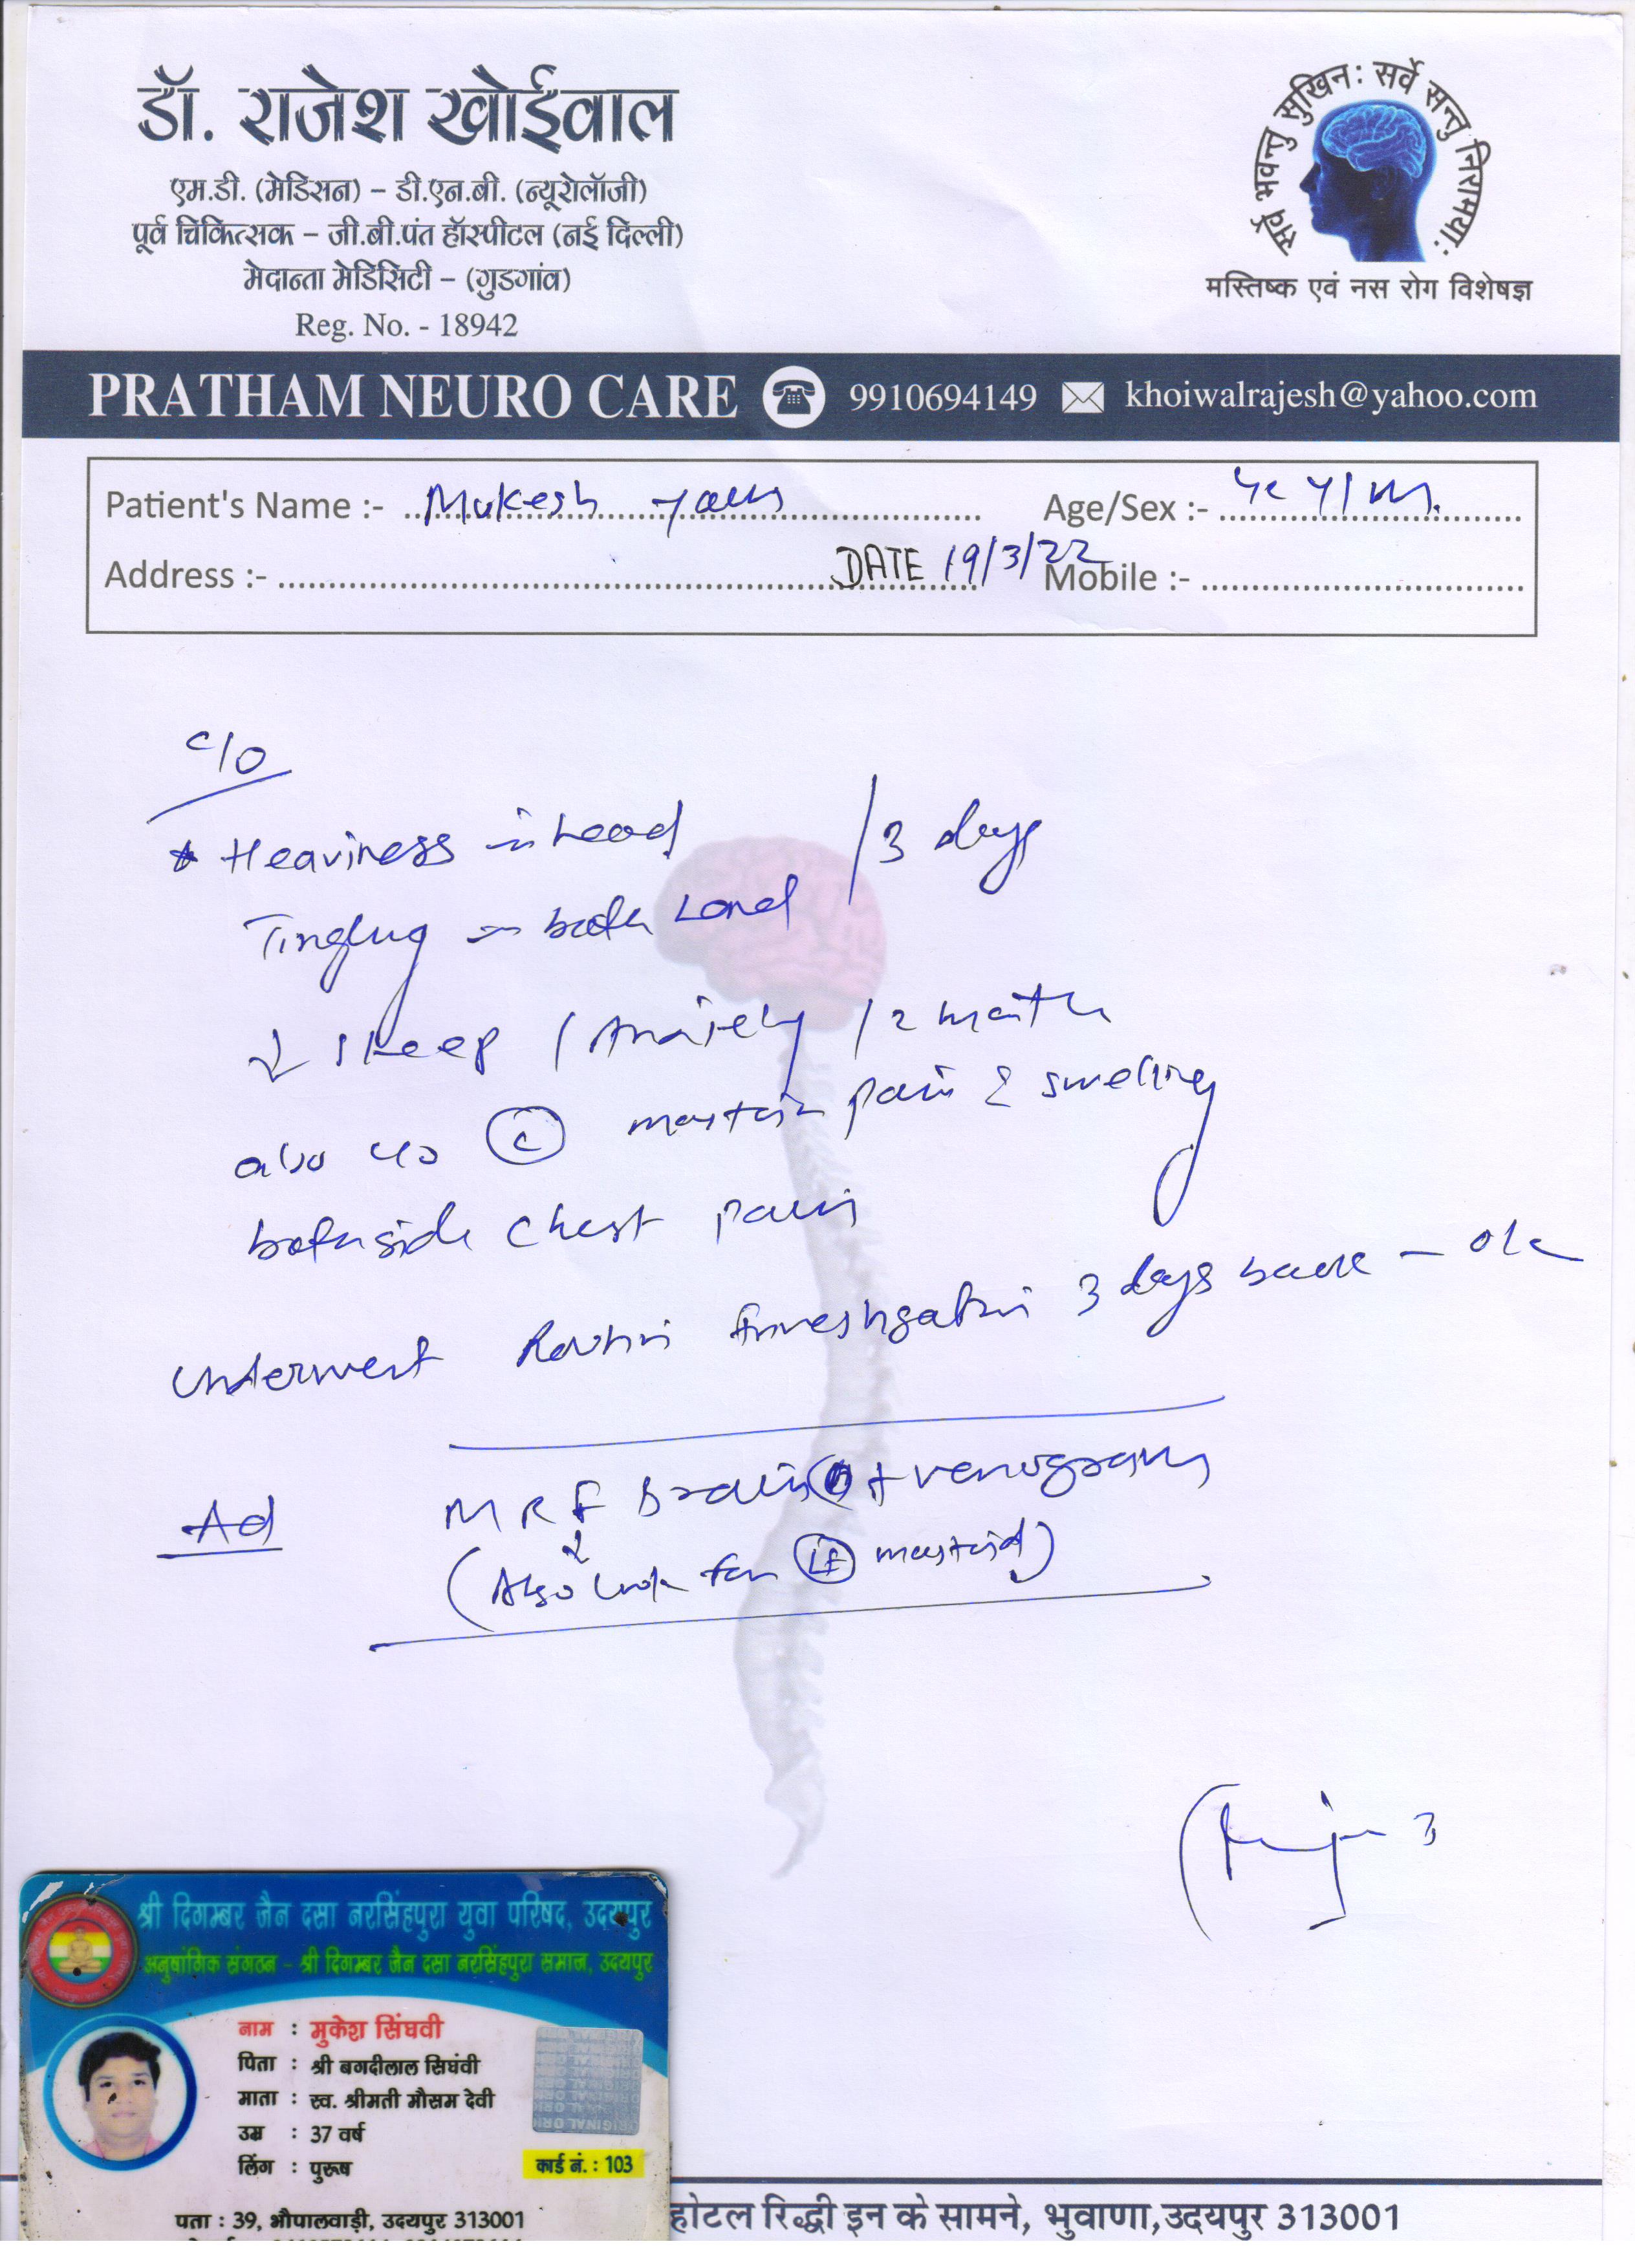 डॉ. राजेश खोईवाल
एम.डी. (मेडिसन) – डी.एन.बी. (न्यूरोलॉजी)
पूर्व चिकित्सक – जी.बी.पंत हॉस्पीटल (नई दिल्ली)
मेदान्ता मेडिसिटी – (गुडगांव)
Reg. No. - 18942
सर्वे भवन्तु सुखिनः सर्वे सन्तु निरामयाः
मस्तिष्क एवं नस रोग विशेषज्ञ
PRATHAM NEURO CARE 9910694149 khoiwalrajesh@yahoo.com
Patient's Name :- Mukesh Age/Sex :-
Address :- DATE 19/3/22 Mobile :-
c/o
* Heaviness in head / 3 days
Tingling in both hand
↓ sleep / Anxiety / 2 month
also c/o mastoid pain & swelling
both side chest pain
Underwent Routine Investigation 3 days back – ok
Ad MRI Brain + venogram
(Also look for Lt mastoid)
श्री दिगम्बर जैन दसा नरसिंहपुरा युवा परिषद, उदयपुर
अनुषांगिक संगठन - श्री दिगम्बर जैन दसा नरसिंहपुरा समाज, उदयपुर
नाम : मुकेश सिंघवी
पिता : श्री बगदीलाल सिघंवी
माता : स्व. श्रीमती मौसम देवी
उम्र : 37 वर्ष
लिंग : पुरूष
कार्ड नं. : 103
पता : 39, भौपालवाड़ी, उदयपुर 313001
होटल रिद्धी इन के सामने, भुवाणा, उदयपुर 313001